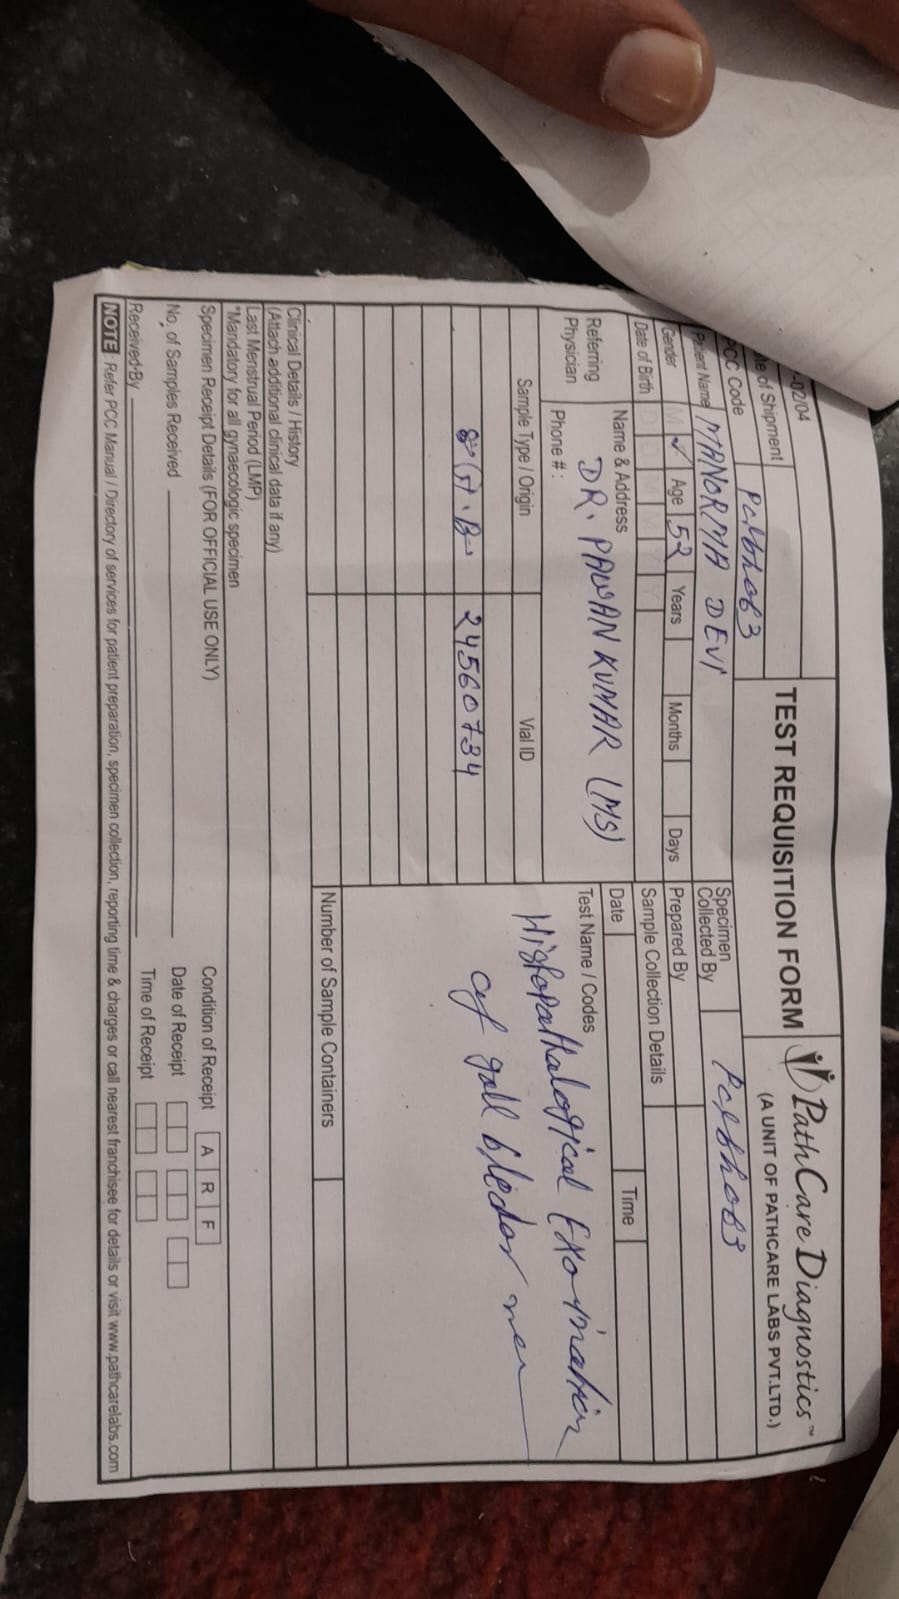 -02/04
TEST REQUISITION FORM
PathCare Diagnostics™
(A UNIT OF PATHCARE LABS PVT.LTD.)
te of Shipment
PCC Code
Patient Name MANORMA DEVI
Gender M Age 52 Years Months Days
Date of Birth D D M M Y Y
Referring Physician
Name & Address
DR. PAWAN KUMAR (MS)
Phone # :
Specimen Collected By
Prepared By
Sample Collection Details
Date Time
Test Name / Codes
Histopathalogical Examination
of gall bledar
Sample Type / Origin Vial ID
24560734
Number of Sample Containers
Clinical Details / History
(Attach additional clinical data if any)
Last Menstrual Period (LMP)
*Mandatory for all gynaecologic specimen
Specimen Receipt Details (FOR OFFICIAL USE ONLY) Condition of Receipt A R F
No. of Samples Received Date of Receipt
Received By Time of Receipt
NOTE : Refer PCC Manual / Directory of services for patient preparation, specimen collection, reporting time & charges or call nearest franchisee for details or visit www.pathcarelabs.com